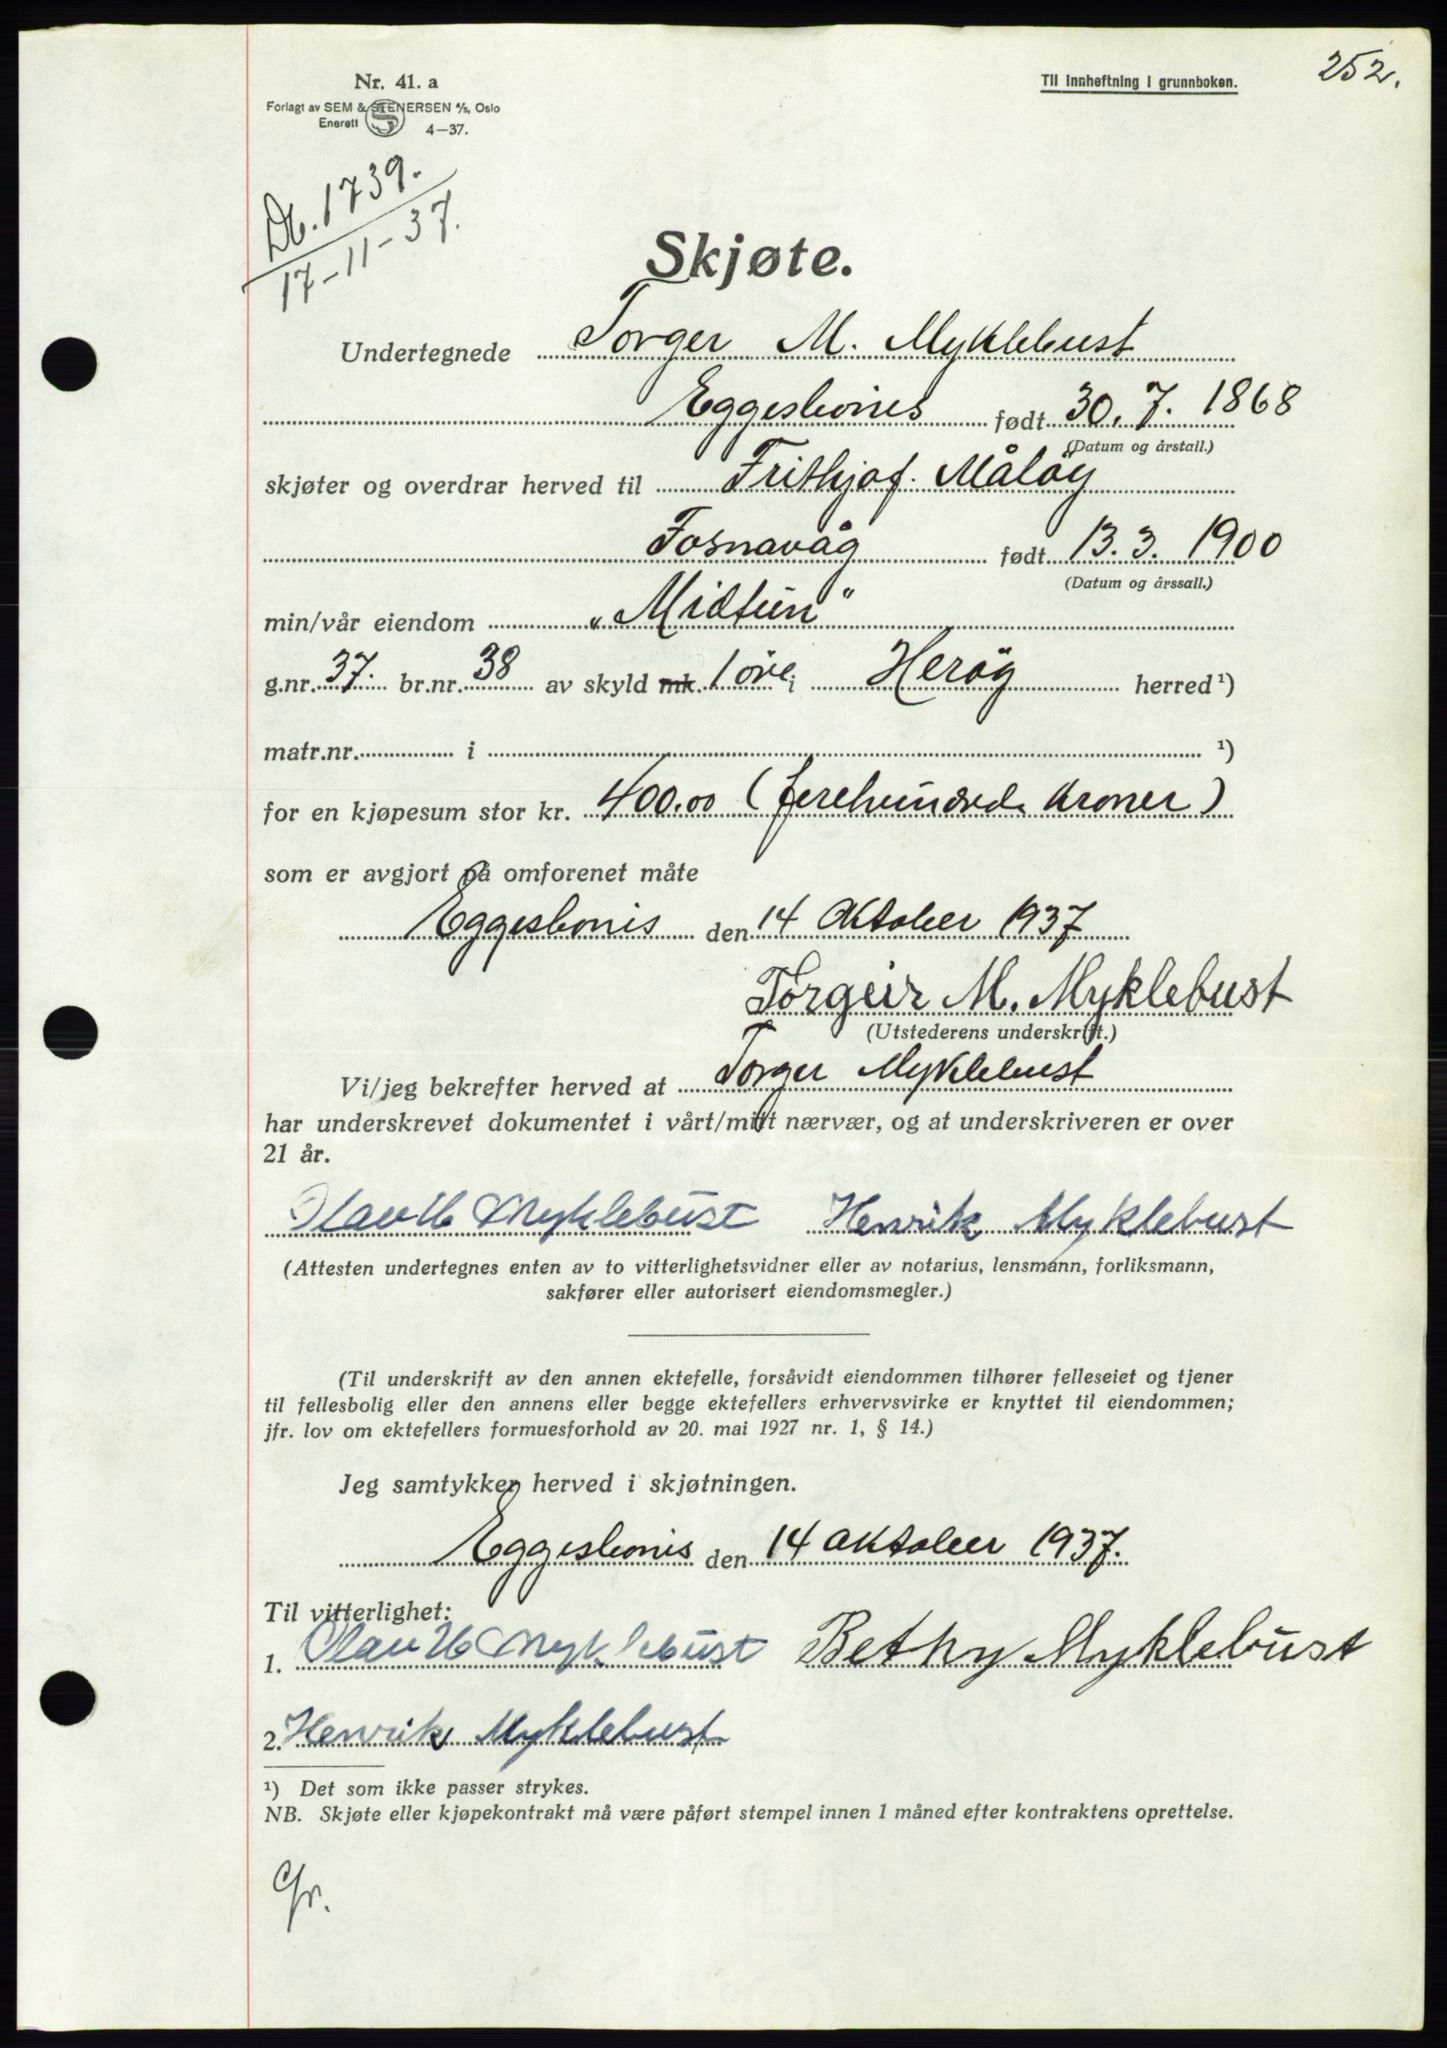 252.
Nr. 41. a
Til innheftning i grunnboken.
Forlagt av SEM & STENERSEN A/S, Oslo
Enerett
S
4—37.
Db. 1739.
17-11-37.
Skjøte.
Undertegnede Torger M. Myklebust
Eggesbönes født 30. 7. 1868
(Datum og årstall.)
skjøter og overdrar herved til Frithjof Måløy
Fosnavåg født 13. 3. 1900
(Datum og årssall.)
min/vår eiendom „Midtun"
g.nr. 37. br.nr. 38 av skyld mk. 1 øre i Herøy herred ¹)
matr.nr. i ¹)
for en kjøpesum stor kr. 400.00 (firehundrede kroner)
som er avgjort på omforenet måte
Eggesbönes den 14 Oktober 1937
Torgeir M. Myklebust
(Utstederens underskrift.)
Vi/jeg bekrefter herved at Torger Myklebust
har underskrevet dokumentet i vårt/mitt nærvær, og at underskriveren er over
21 år.
Olav H Myklebust Henrik Myklebust
(Attesten undertegnes enten av to vitterlighetsvidner eller av notarius, lensmann, forliksmann,
sakfører eller autorisert eiendomsmegler.)
(Til underskrift av den annen ektefelle, forsåvidt eiendommen tilhører felleseiet og tjener
til fellesbolig eller den annens eller begge ektefellers erhvervsvirke er knyttet til eiendommen;
jfr. lov om ektefellers formuesforhold av 20. mai 1927 nr. 1, § 14.)
Jeg samtykker herved i skjøtningen.
Eggesbönes den 14 oktober 1937.
Til vitterlighet:
1. Olav H Myklebust Bethy Myklebust
2. Henrik Myklebust
¹) Det som ikke passer strykes.
NB. Skjøte eller kjøpekontrakt må være påført stempel innen 1 måned efter kontraktens oprettelse.
Gr.